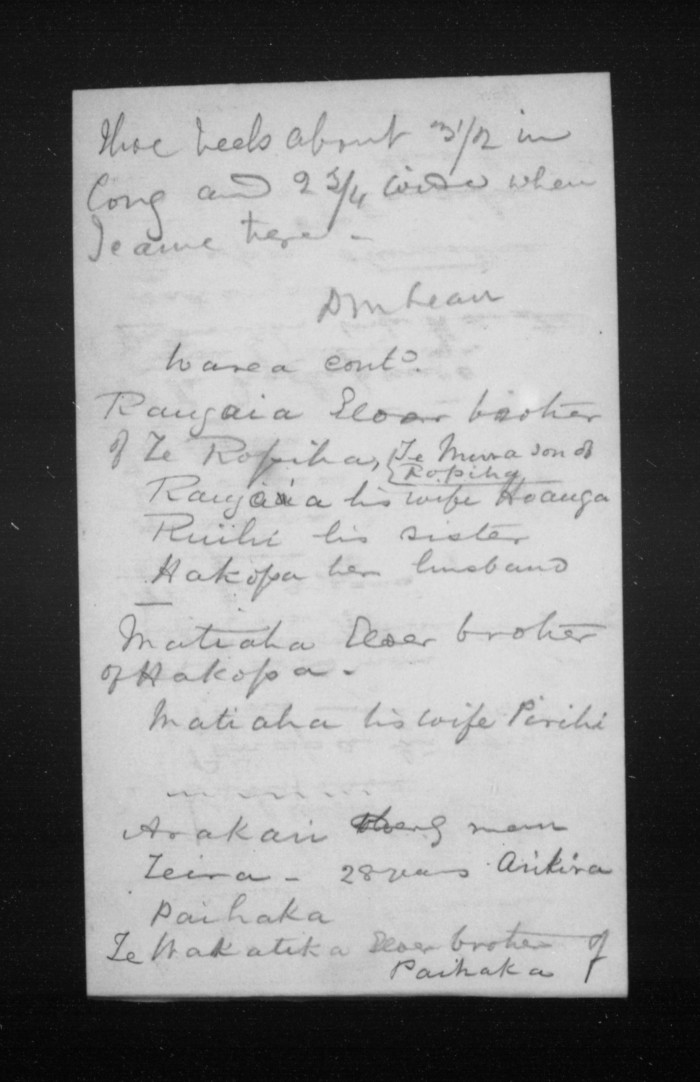 Shoe heels about 3 1/2 in
long and 2 3/4 wide when
I came here -
D McLean
Warea contd.
Rangaia Elder brother
of Te Ropiha, { Te Mura son of
Ropiha
Rangaia his wife Hoanga
Ruihi his sister
Hakopa her husband
Matiaha Elder brother
of Hakopa -
Matiaha his wife Pirihi
Arakari man
Teira - 28 years Arikira
Paihaka
Te Wakatika Elder brother of
Paihaka